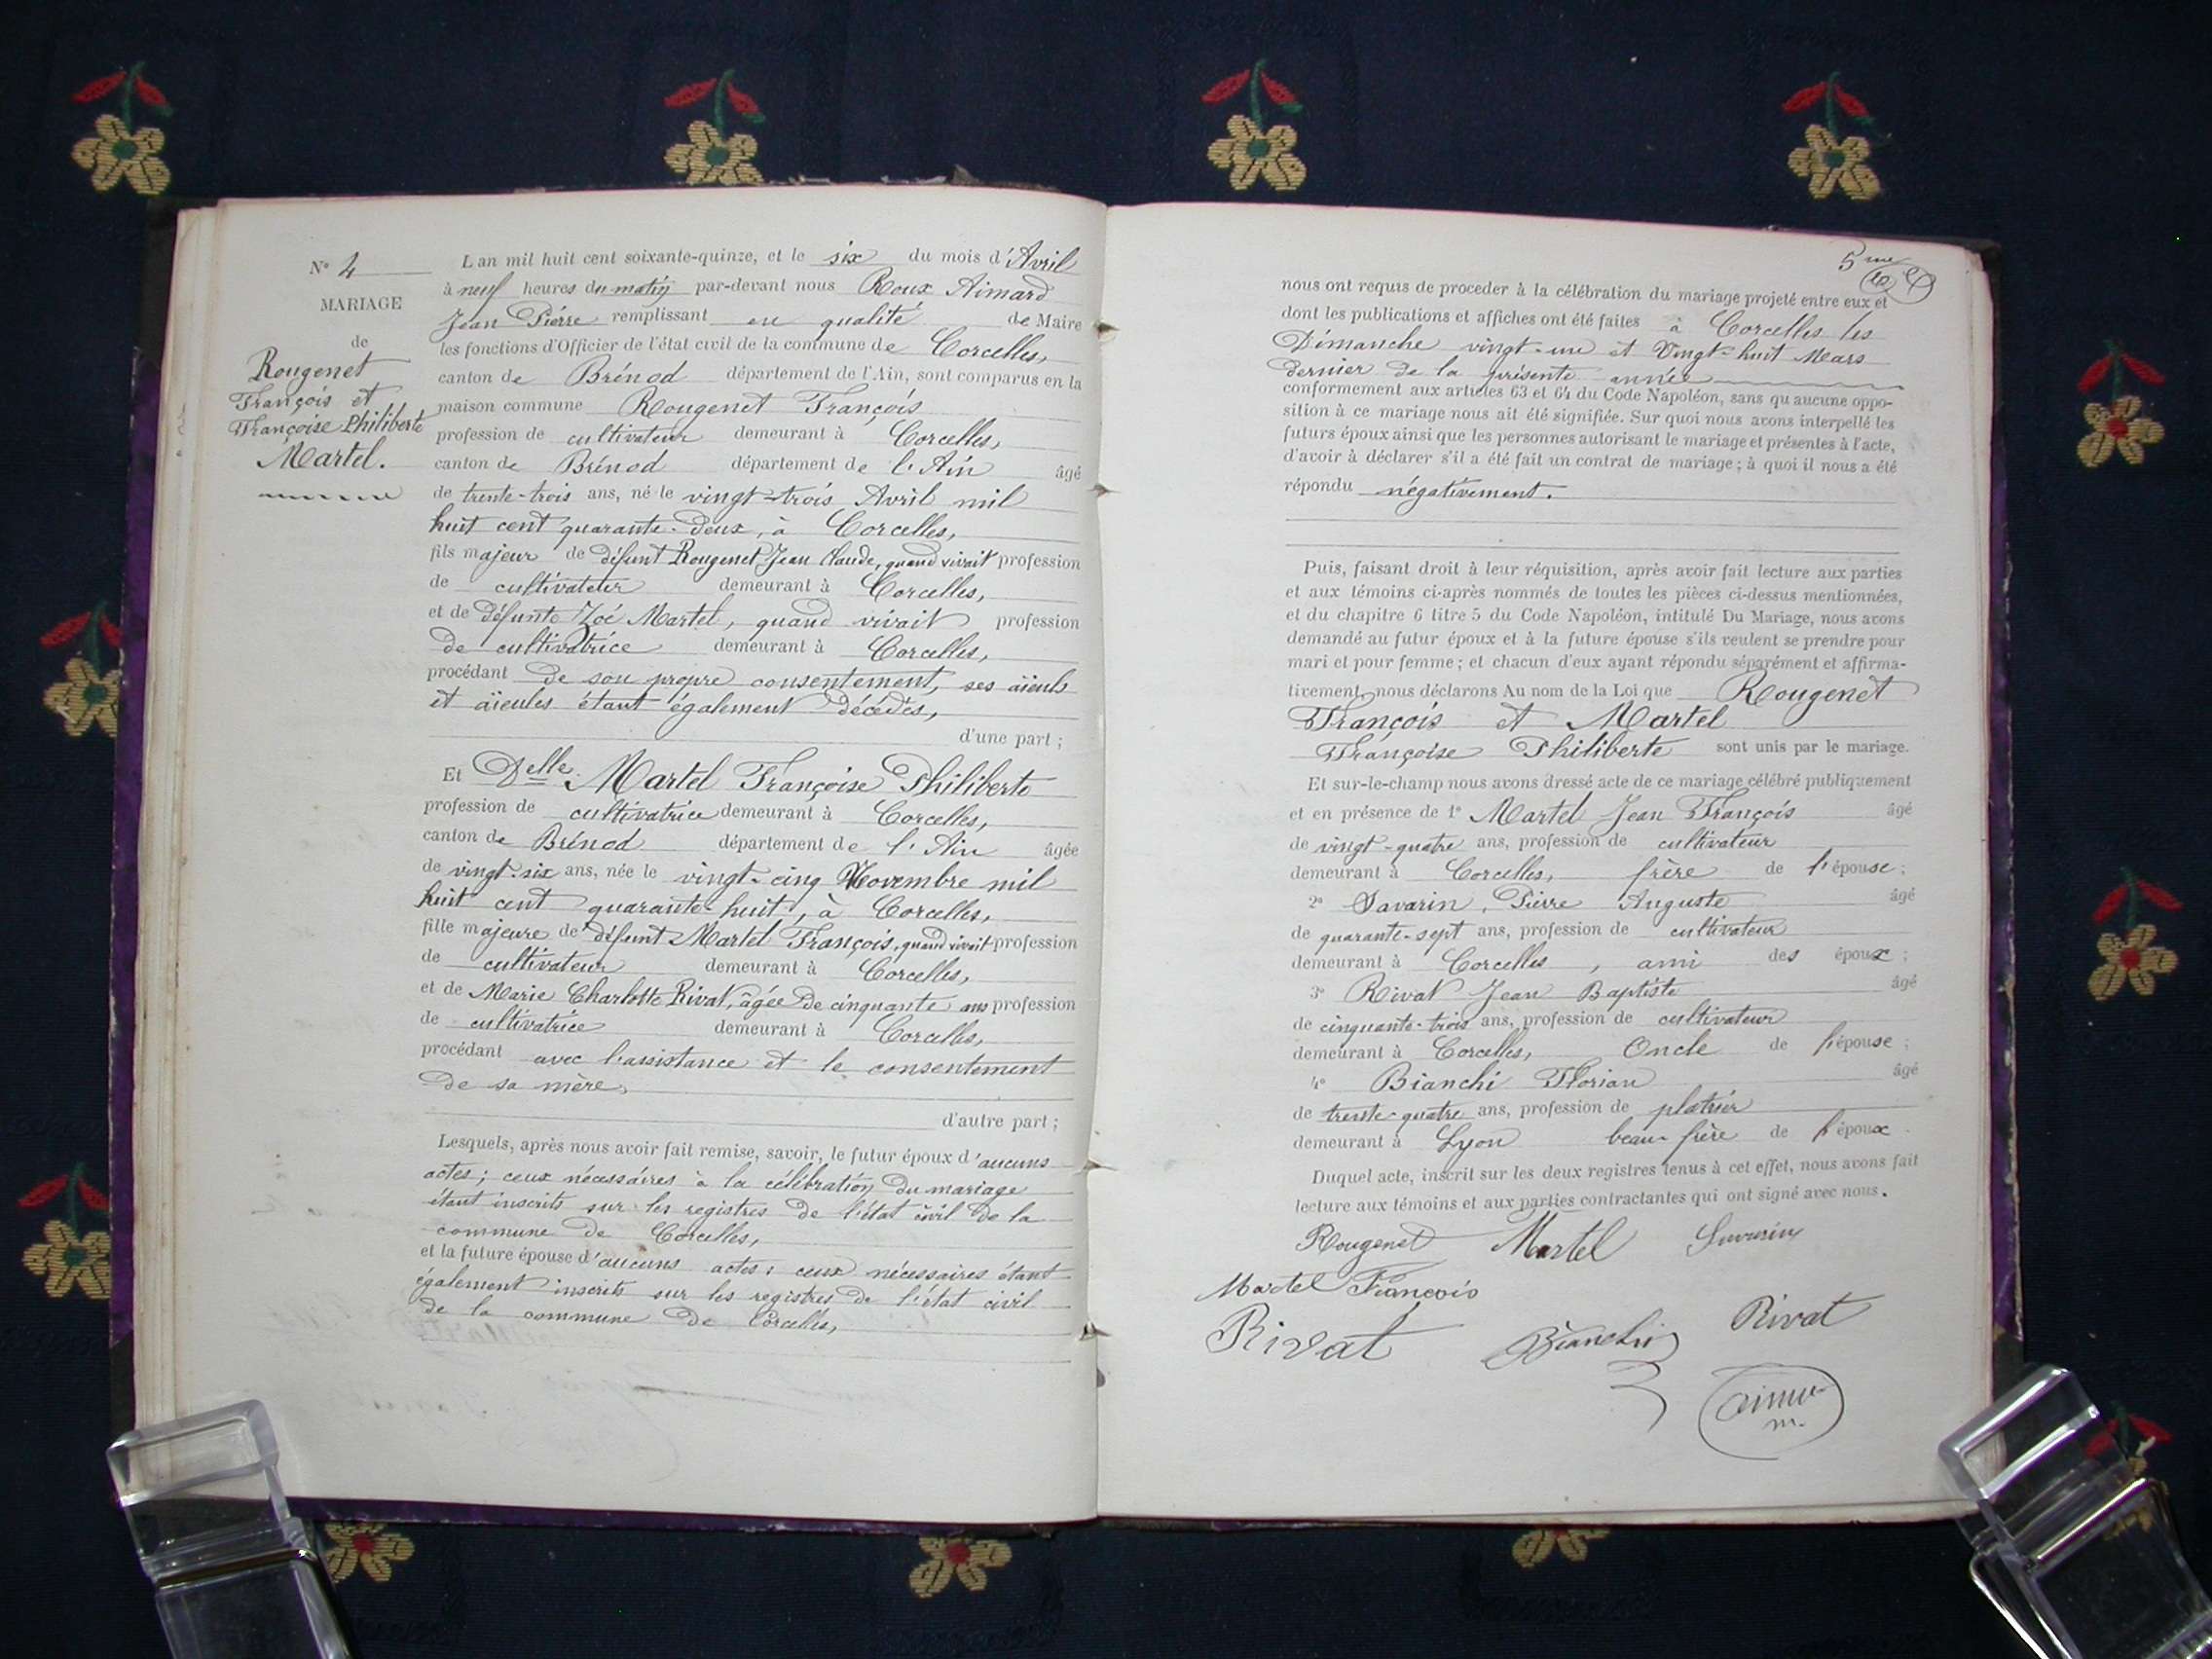 N° 4
MARIAGE
de
Rougenet
François et
Françoise Philiberte
Martel.
L an mil huit cent soixante-quinze, et le six du mois d'Avril
à neuf heures du matin par-devant nous Roux Aimard
Jean Pierre remplissant en qualité de Maire
les fonctions d'Officier de l'état civil de la commune de Corcelles,
canton de Brénod département de l'Ain, sont comparus en la
maison commune Rougenet François
profession de cultivateur demeurant à Corcelles,
canton de Brénod département de l'Ain âgé
de trente-trois ans, né le vingt-trois Avril mil
huit cent quarante-deux, à Corcelles,
fils majeur de défunt Rougenet Jean Claude, quand vivait profession
de cultivateur demeurant à Corcelles,
et de défunte Zoé Martel, quand vivait profession
de cultivatrice demeurant à Corcelles,
procédant de son propre consentement, ses aïeuls
et aïeules étant également décédés,
d'une part ;
Et Delle Martel Françoise Philiberte
profession de cultivatrice demeurant à Corcelles,
canton de Brénod département de l'Ain âgée
de vingt-six ans, née le vingt-cinq Novembre mil
huit cent quarante-huit, à Corcelles,
fille majeure de défunt Martel François, quand vivait profession
de cultivateur demeurant à Corcelles,
et de Marie Charlotte Rivat, âgée de cinquante ans profession
de cultivatrice demeurant à Corcelles,
procédant avec l'assistance et le consentement
de sa mère,
d'autre part ;
Lesquels, après nous avoir fait remise, savoir, le futur époux d'aucuns
actes ; ceux nécessaires à la célébration du mariage
étant inscrits sur les registres de l'état civil de la
commune de Corcelles,
et la future épouse d'aucuns actes : ceux nécessaires étant
également inscrits sur les registres de l'état civil
de la commune de Corcelles,
5me
nous ont requis de proceder à la célébration du mariage projeté entre eux et
dont les publications et affiches ont été faites à Corcelles les
Dimanche vingt-un et Vingt-huit Mars
dernier de la présente année
conformement aux articles 63 et 64 du Code Napoléon, sans qu aucune oppo-
sition à ce mariage nous ait été signifiée. Sur quoi nous avons interpellé les
futurs époux ainsi que les personnes autorisant le mariage et présentes à l'acte,
d'avoir à déclarer s'il a été fait un contrat de mariage ; à quoi il nous a été
répondu négativement.
Puis, faisant droit à leur réquisition, après avoir fait lecture aux parties
et aux témoins ci-après nommés de toutes les pièces ci-dessus mentionnées,
et du chapitre 6 titre 5 du Code Napoléon, intitulé Du Mariage, nous avons
demandé au futur époux et à la future épouse s'ils veulent se prendre pour
mari et pour femme ; et chacun d'eux ayant répondu séparément et affirma-
tivement, nous déclarons Au nom de la Loi que Rougenet
François et Martel
Françoise Philiberte sont unis par le mariage.
Et sur-le-champ nous avons dressé acte de ce mariage célébré publiquement
et en présence de 1° Martel Jean François âgé
de vingt-quatre ans, profession de cultivateur
demeurant à Corcelles, frère de l'épouse ;
2° Savarin, Pierre Auguste âgé
de quarante-sept ans, profession de cultivateur
demeurant à Corcelles, ami des époux ;
3° Rivat Jean Baptiste âgé
de cinquante-trois ans, profession de cultivateur
demeurant à Corcelles, Oncle de l'épouse ;
4° Bianchi Florian âgé
de trente-quatre ans, profession de platrier
demeurant à Lyon beau-frère de l'époux.
Duquel acte, inscrit sur les deux registres tenus à cet effet, nous avons fait
lecture aux témoins et aux parties contractantes qui ont signé avec nous.
Rougenet Martel Savarin
Martel François
Rivat Bianchi Rivat